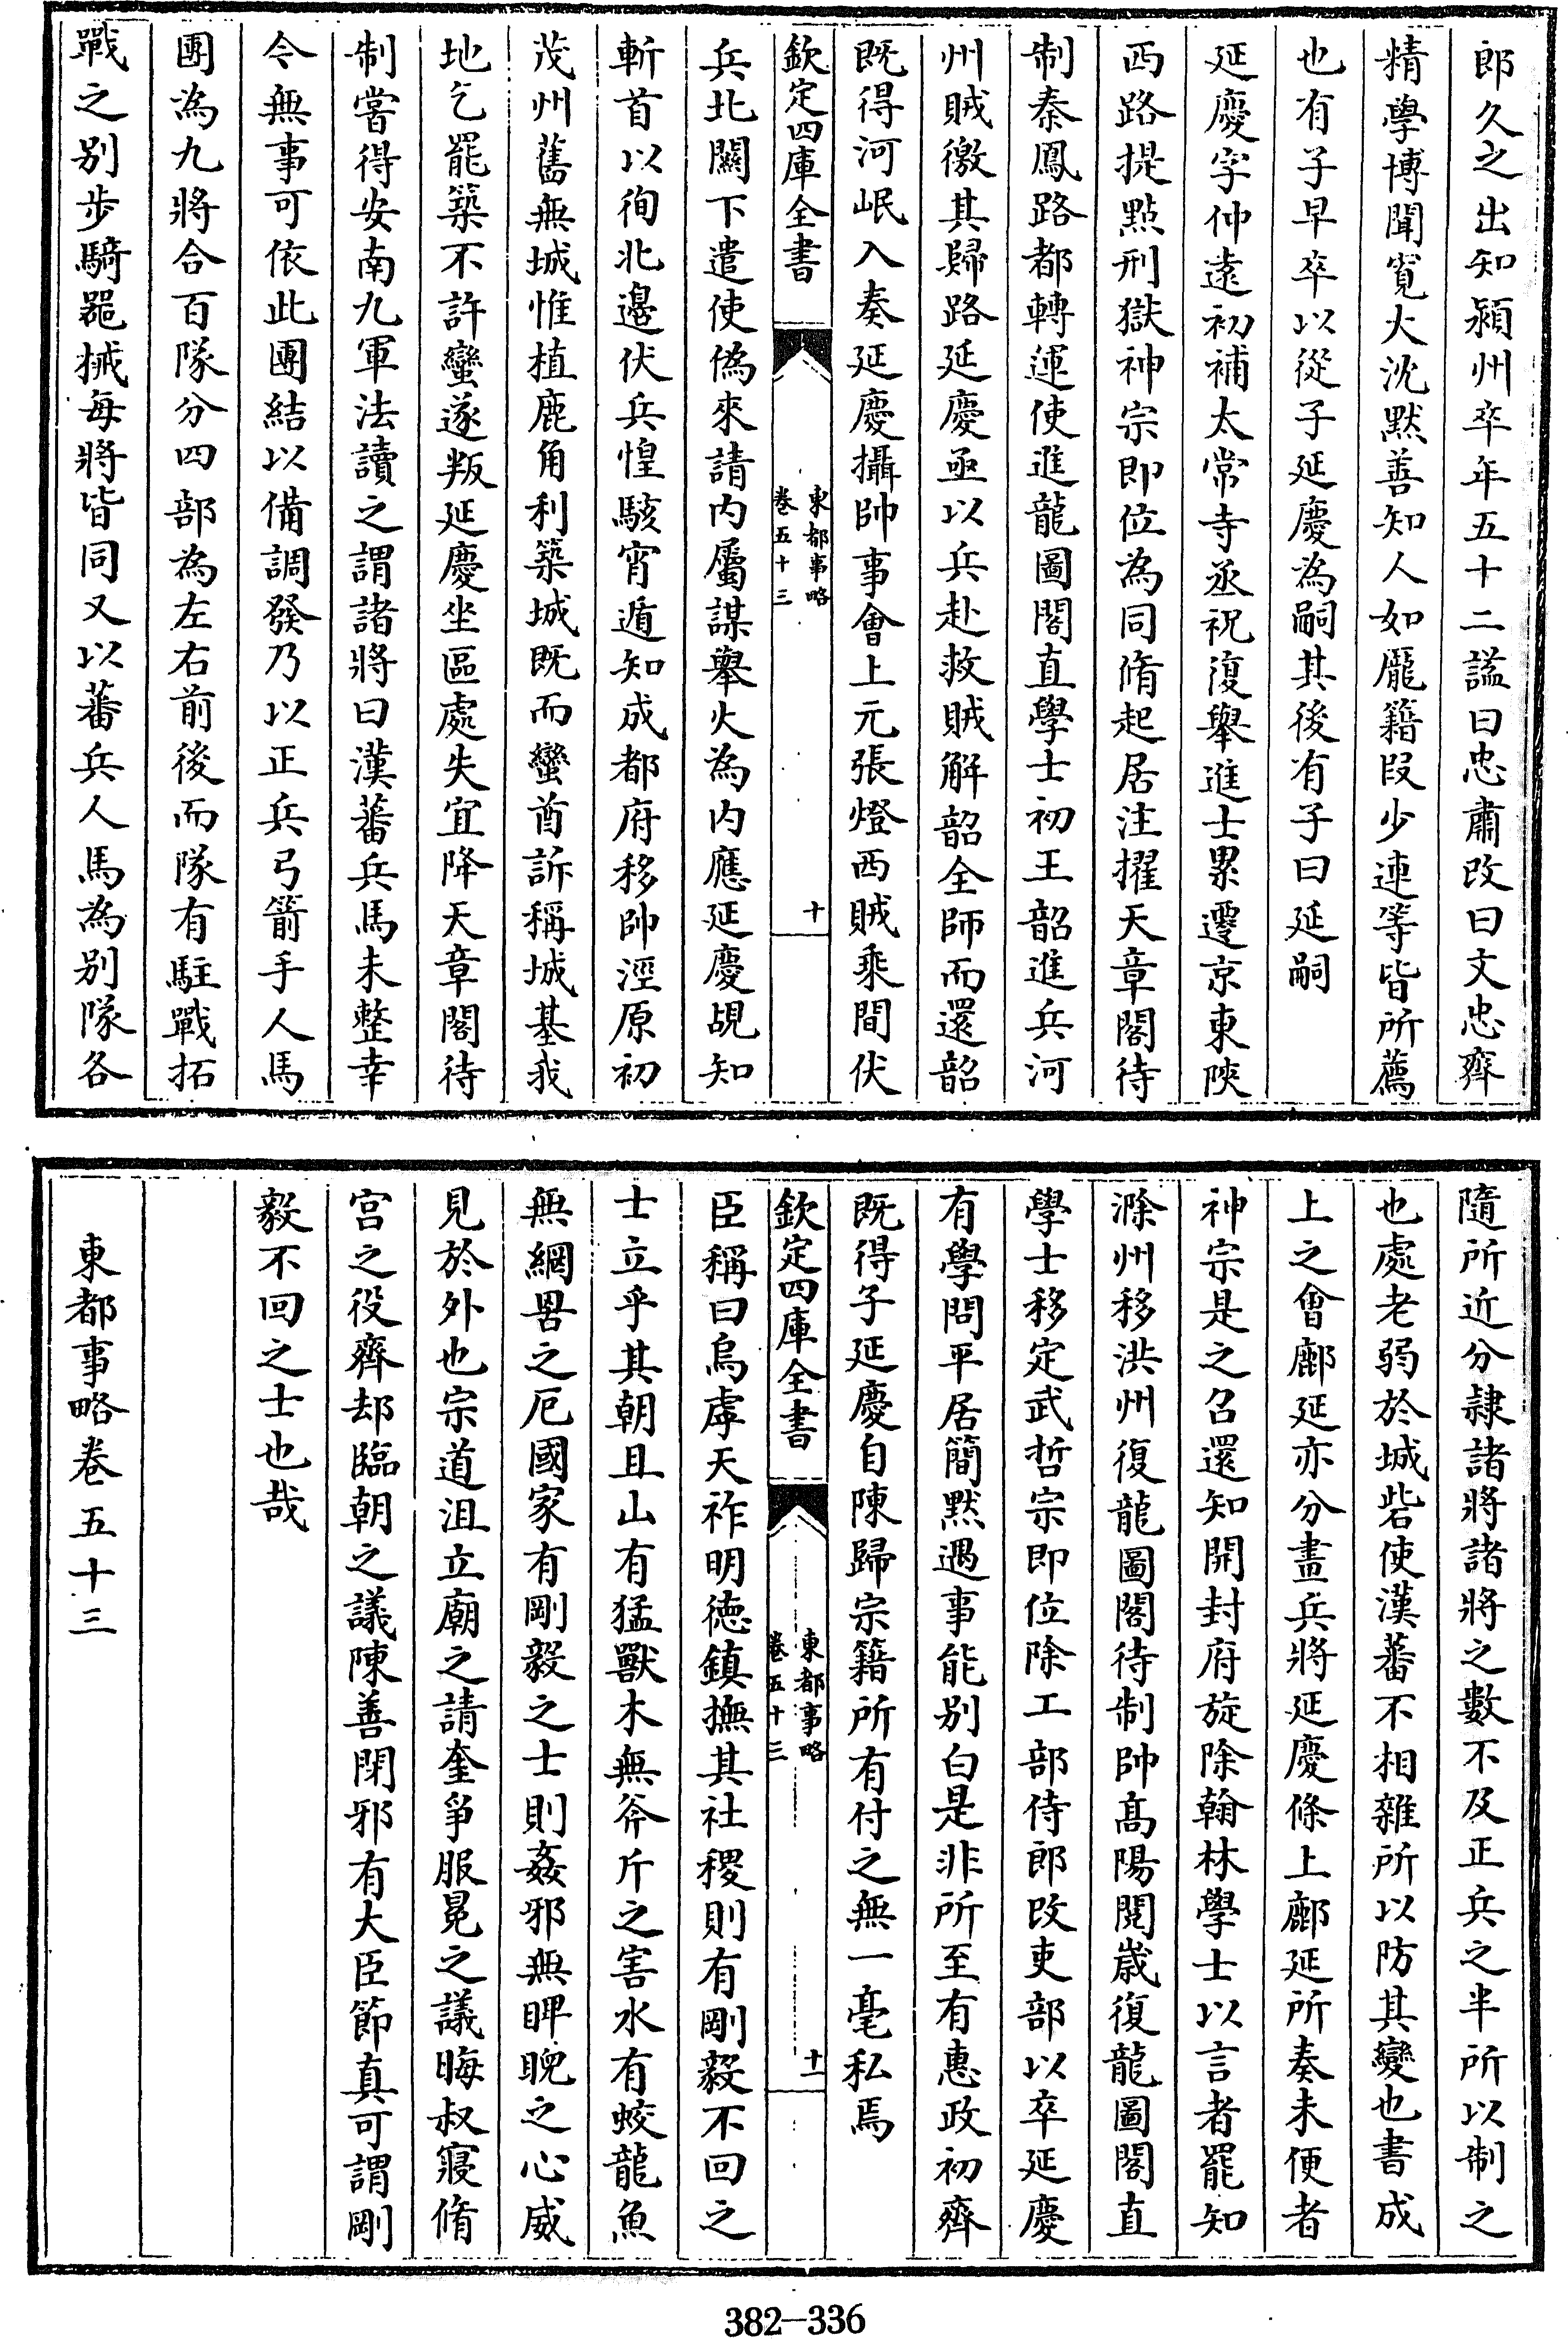 郎久之出知潁州卒年五十二謚曰忠肅改曰文忠齊
精學博聞寛大沈黙善知人如龎籍段少連等皆所薦
也有子早卒以從子延慶為嗣其後有子曰延嗣
延慶字仲逺初補太常寺丞祝復舉進士累遷京東陜
西路提㸃刑獄神宗即位為同脩起居注擢天章閣待
制秦鳳路都轉運使進龍圖閣直學士初王韶進兵河
州賊徼其歸路延慶亟以兵赴救賊解韶全師而還韶
既得河岷入奏延慶攝帥事會上元張燈西賊乘間伏
欽定四庫全書
東都事略
卷五十三
十
兵北闗下遣使偽來請内屬謀舉火為内應延慶覘知
斬首以徇北邉伏兵惶駭宵遁知成都府移帥涇原初
茂州舊無城惟植鹿角利築城既而蠻酋訴稱城基我
地乞罷築不許蠻遂叛延慶坐區處失宜降天章閣待
制嘗得安南九軍法讀之謂諸將曰漢蕃兵馬未整幸
今無事可依此團結以備調發乃以正兵弓箭手人馬
團為九將合百隊分四部為左右前後而隊有駐戰拓
戰之别步騎噐械每將皆同又以蕃兵人馬為别隊各
隨所近分隷諸將諸將之數不及正兵之半所以制之
也處老弱於城砦使漢蕃不相雜所以防其變也書成
上之會鄜延亦分畫兵將延慶條上鄜延所奏未便者
神宗是之召還知開封府旋除翰林學士以言者罷知
滁州移洪州復龍圖閣待制帥髙陽閲歳復龍圖閣直
學士移定武哲宗即位除工部侍郎改吏部以卒延慶
有學問平居簡黙遇事能别白是非所至有惠政初齊
既得子延慶自陳歸宗籍所有付之無一毫私焉
欽定四庫全書
東都事略
卷五十三
十一
臣稱曰烏虖天祚明徳鎮撫其社稷則有剛毅不回之
士立乎其朝且山有猛獸木無斧斤之害水有蛟龍魚
無網罟之厄國家有剛毅之士則姦邪無睥睨之心威
見於外也宗道沮立廟之請奎爭服冕之議晦叔寢脩
宫之役齊却臨朝之議陳善閉邪有大臣節真可謂剛
毅不回之士也哉
東都事略卷五十三
382-336